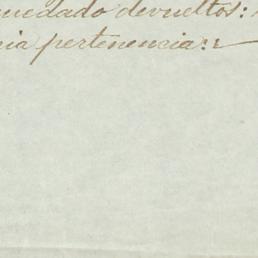 quedado devueltos:
pertenencia: